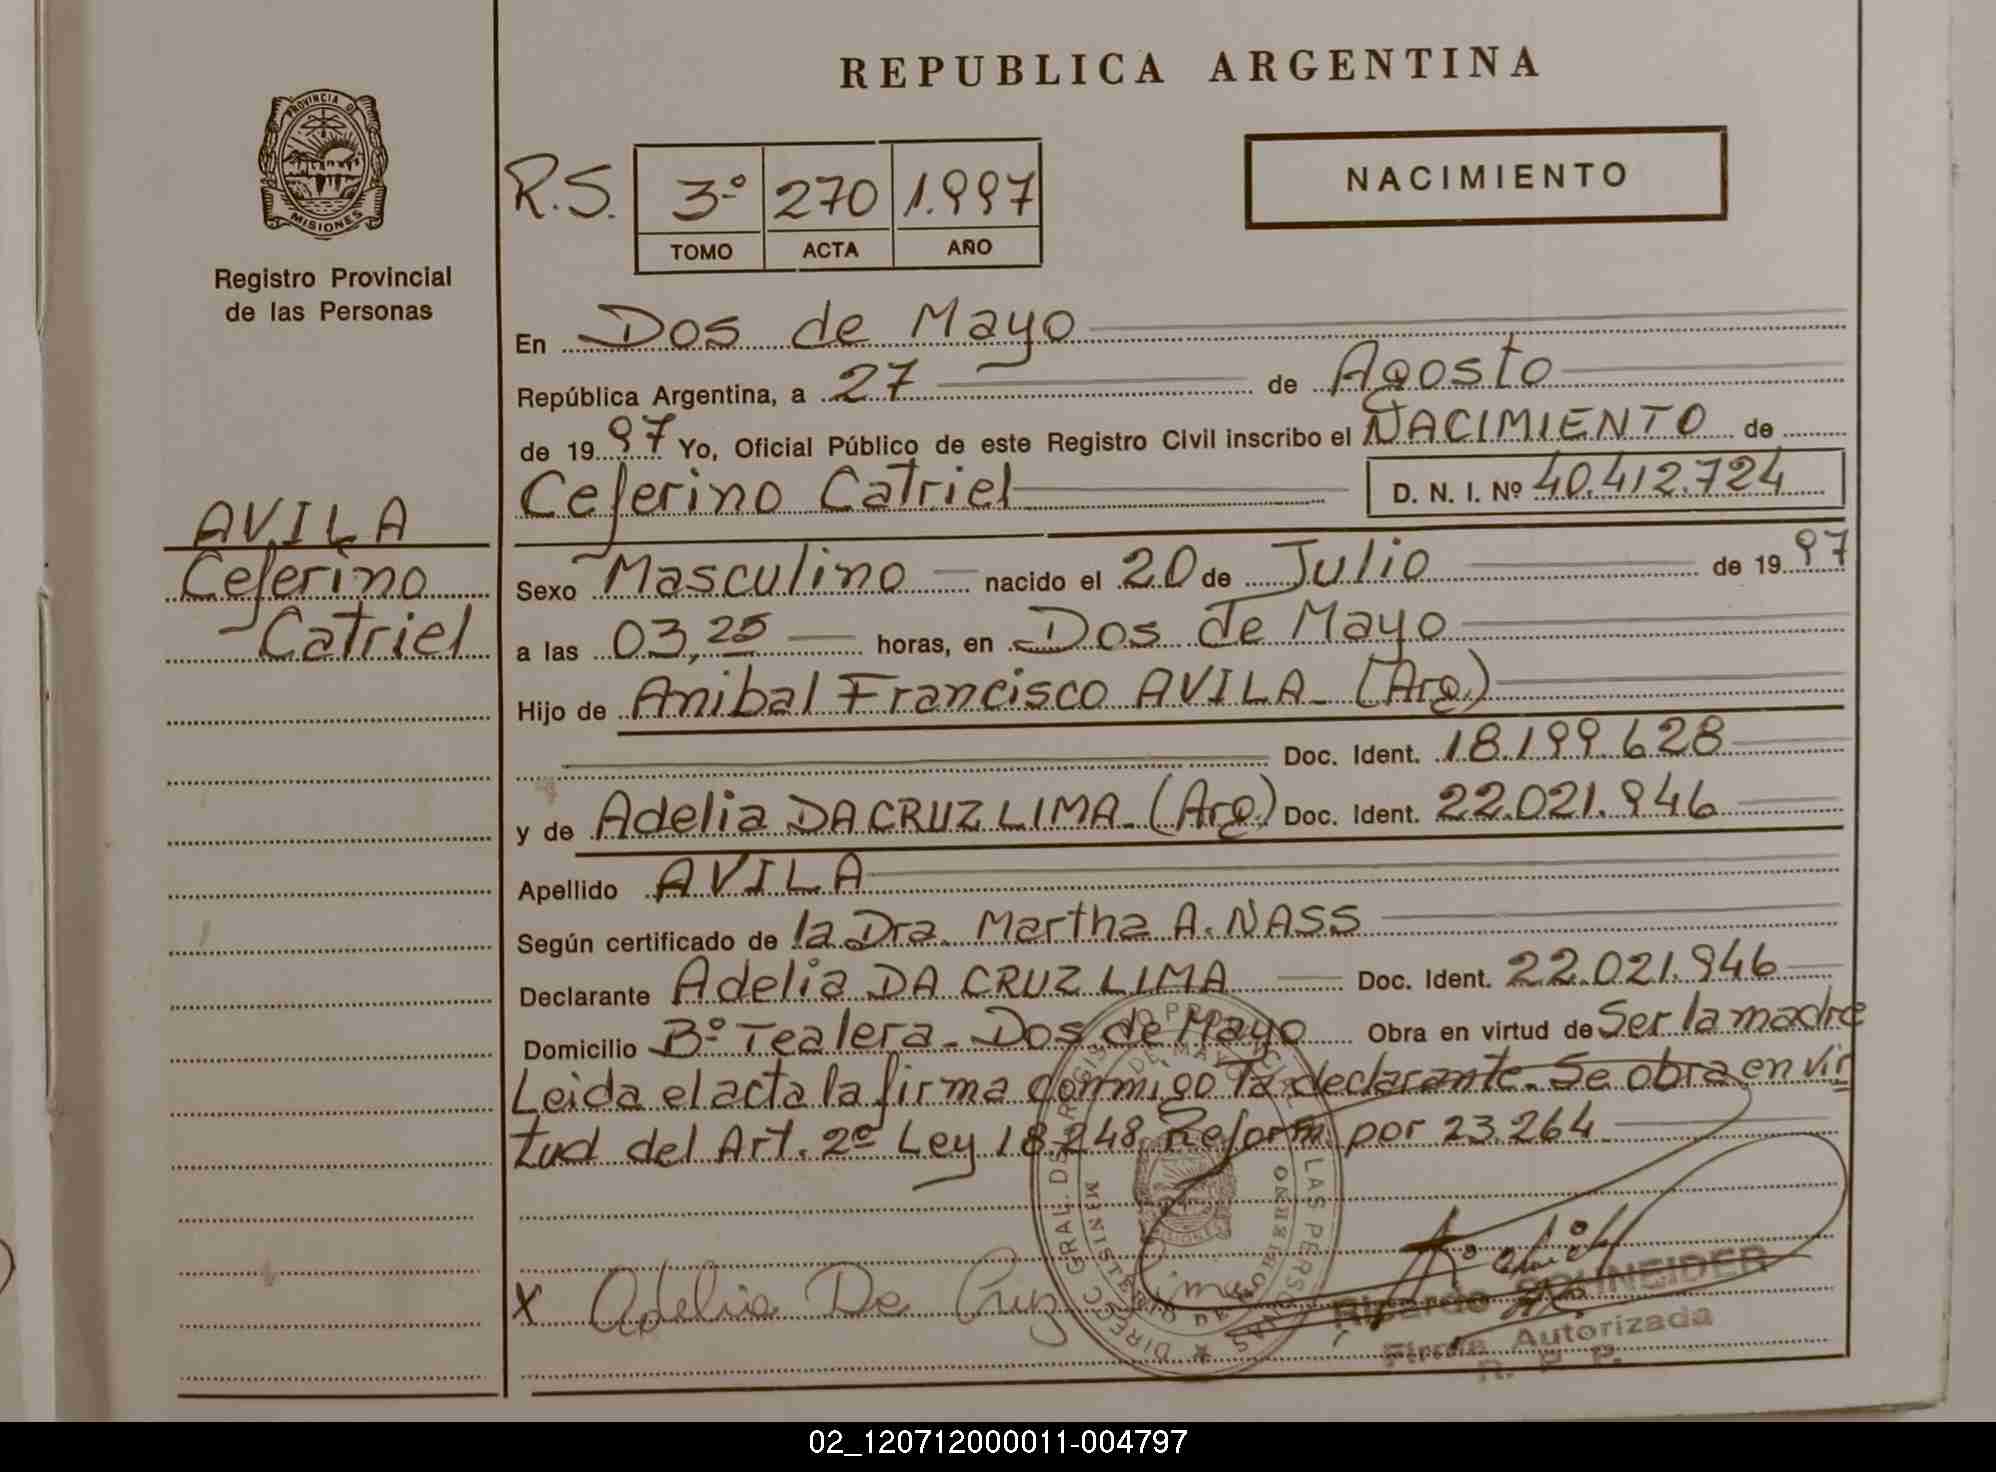 REPUBLICA ARGENTINA
PROVINCIA DE
MISIONES
Registro Provincial
de las Personas
R.S. 3º 270 1.997
TOMO ACTA AÑO
NACIMIENTO
En Dos de Mayo
República Argentina, a 27 de Agosto
de 1997 Yo, Oficial Público de este Registro Civil inscribo el NACIMIENTO de
Ceferino Catriel D. N. I. Nº 40.412.724
AVILA
Ceferino
Catriel
Sexo Masculino nacido el 20 de Julio de 1997
a las 03,25 horas, en Dos de Mayo
Hijo de Anibal Francisco AVILA_ (Arg.)
Doc. Ident. 18.199.628
y de Adelia DA CRUZ LIMA_ (Arg) Doc. Ident. 22.021.946
Apellido AVILA
Según certificado de la Dra. Martha A. NASS
Declarante Adelia DA CRUZ LIMA Doc. Ident. 22.021.946
Domicilio Bº Tealera_ Dos de Mayo Obra en virtud de Ser la madre
Leida el acta la firma conmigo la declarante. Se obra en vir
tud del Art. 2º Ley 18.248 Reform. por 23.264
X Adelia De Cruz Lima
Ricardo SCHNEIDER
Firma Autorizada
R. P. P.
02_120712000011-004797